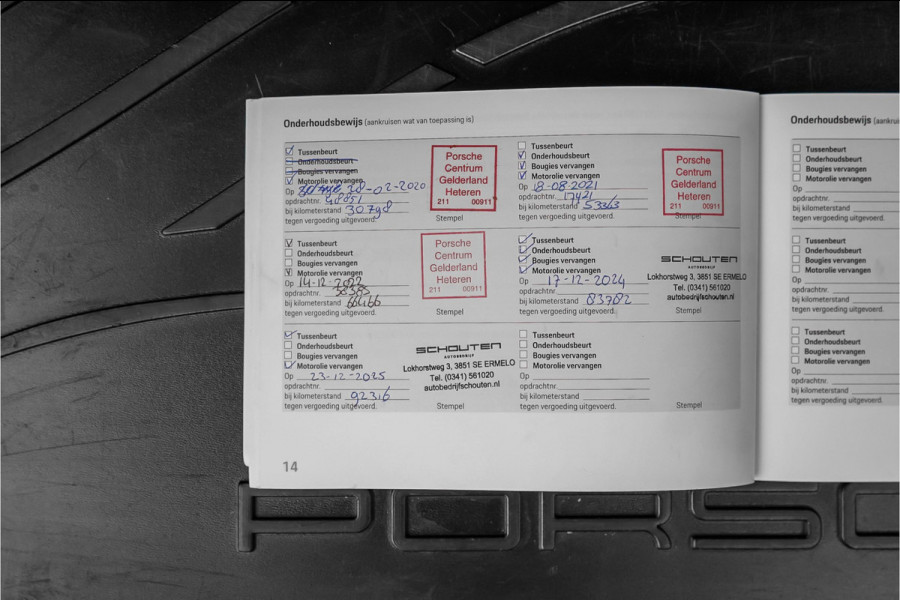 Onderhoudsbewijs (aankruisen wat van toepassing is)
Tussenbeurt
Onderhoudsbeurt
Bougies vervangen
Motorolie vervangen
Op 28-02-2020
opdrachtnr. 48851
bij kilometerstand 30798
tegen vergoeding uitgevoerd.
Porsche
Centrum
Gelderland
Heteren
211 00911
Stempel
Tussenbeurt
Onderhoudsbeurt
Bougies vervangen
Motorolie vervangen
Op 18-08-2021
opdrachtnr. 17421
bij kilometerstand 53363
tegen vergoeding uitgevoerd.
Porsche
Centrum
Gelderland
Heteren
211 00911
Stempel
Tussenbeurt
Onderhoudsbeurt
Bougies vervangen
Motorolie vervangen
Op 14-12-2022
opdrachtnr.
bij kilometerstand 66466
tegen vergoeding uitgevoerd.
Porsche
Centrum
Gelderland
Heteren
211 00911
Stempel
Tussenbeurt
Onderhoudsbeurt
Bougies vervangen
Motorolie vervangen
Op 17-12-2024
opdrachtnr.
bij kilometerstand 83782
tegen vergoeding uitgevoerd.
SCHOUTEN
AUTOBEDRIJF
Lokhorstweg 3, 3851 SE ERMELO
Tel. (0341) 561020
autobedrijfschouten.nl
Stempel
Tussenbeurt
Onderhoudsbeurt
Bougies vervangen
Motorolie vervangen
Op 23-12-2025
opdrachtnr.
bij kilometerstand 92316
tegen vergoeding uitgevoerd.
SCHOUTEN
AUTOBEDRIJF
Lokhorstweg 3, 3851 SE ERMELO
Tel. (0341) 561020
autobedrijfschouten.nl
Stempel
Tussenbeurt
Onderhoudsbeurt
Bougies vervangen
Motorolie vervangen
Op
opdrachtnr.
bij kilometerstand
tegen vergoeding uitgevoerd.
Stempel
14
Onderhoudsbewijs (aankrui
Tussenbeurt
Onderhoudsbeurt
Bougies vervangen
Motorolie vervangen
Op
opdrachtnr.
bij kilometerstand
tegen vergoeding uitgevoerd.
Tussenbeurt
Onderhoudsbeurt
Bougies vervangen
Motorolie vervangen
Op
opdrachtnr.
bij kilometerstand
tegen vergoeding uitgevoerd.
Tussenbeurt
Onderhoudsbeurt
Bougies vervangen
Motorolie vervangen
Op
opdrachtnr.
bij kilometerstand
tegen vergoeding uitgevoerd.
PORSC